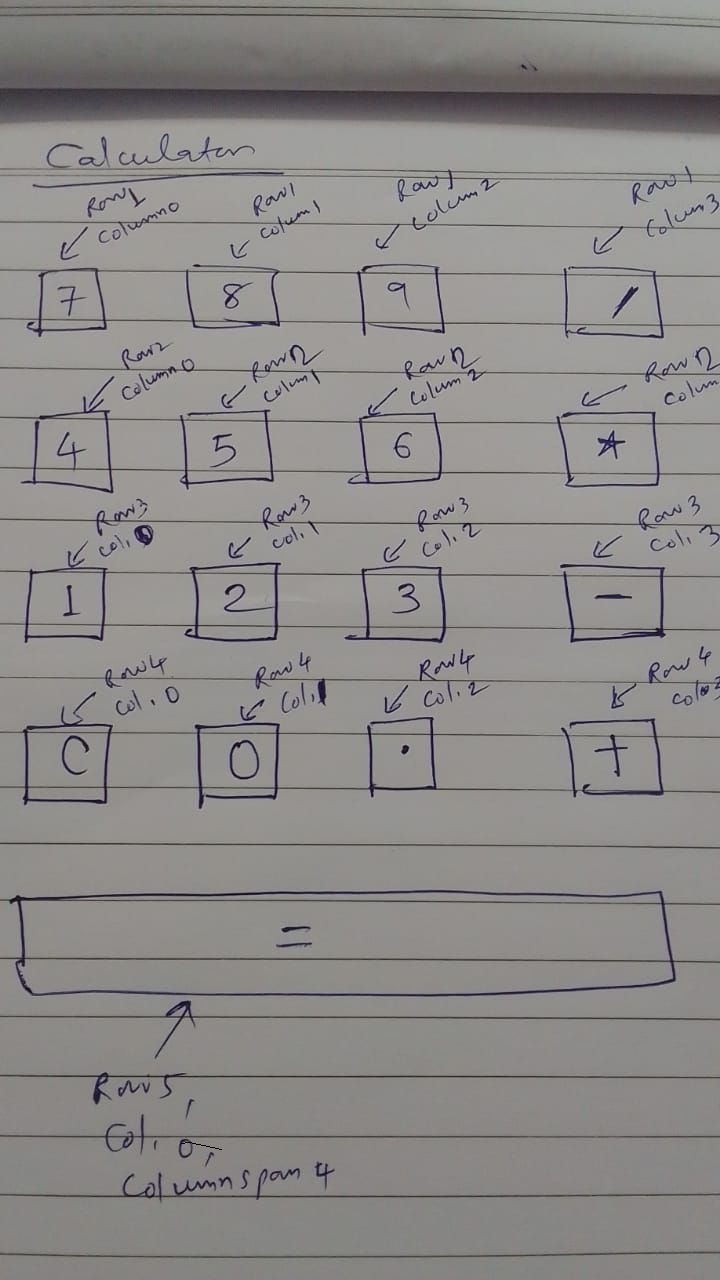 Calculator
Row1
Column0
Row1
Colum1
Row1
Colum2
Row1
Colum3
7
8
9
/
Row2
Column0
Row2
Colum1
Row2
Colum2
Row2
Colum
4
5
6
*
Row3
Col.0
Row3
Col.1
Row3
Col.2
Row3
Col.3
1
2
3
-
Row4
Col.0
Row4
Col.1
Row4
Col.2
Row4
Col.3
C
0
.
+
=
Row5,
Col.0,
Columnspan4